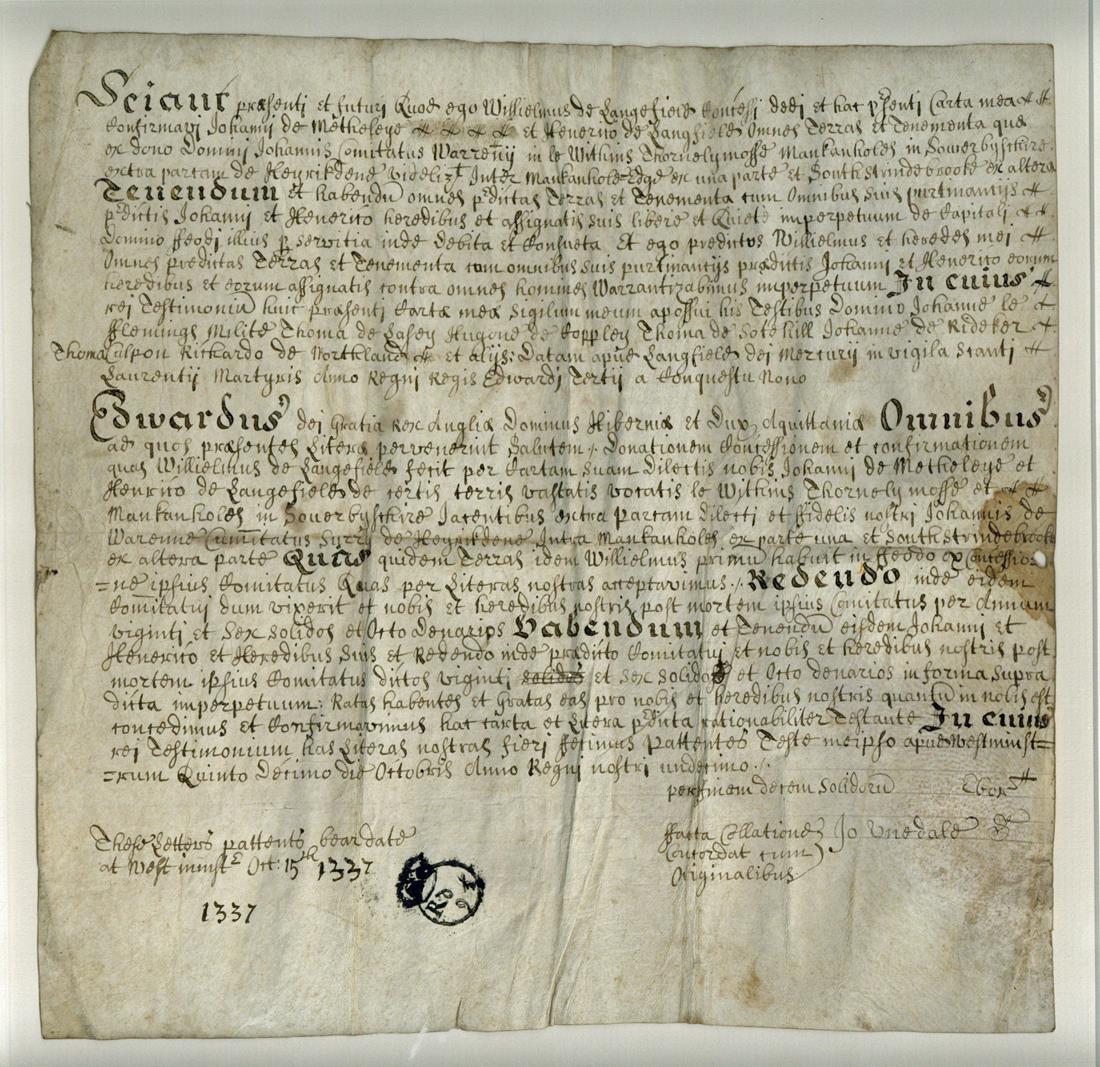 Sciant præsenti et futuri Quod ego Willielmus de Langefield Concessi dedi et hac p'senti Carta mea
Confirmavi Johanij de Metheleye et Henerico de Langfield Omnes Terras et Tenementa que
ex dono Domini Johannis Comitatus Warrenij in le Withins Thornelymosse Mankanholes in Sowerbyshire
extra parcam de Heyrikdene videlizt Inter Mankanholes Edge ex una parte et Southstrindebrooke ex altera
Tenendum et habendū omnes p'dictas Terras et Tenementa cum Omnibus suis purtinantijs
p'dictis Johanij et Henerico heredibus et assignatis suis libere et Quiete imperpetuum de Kapitali
Domino ffeodi illius p servitia inde debita et Konsueta Et ego predictus Willielmus et heredes mei
Omnes predictas Terras et Tenementa com omnibus suis purtinantijs prædictis Johanij et Henerico eorum
heredibus et eorum assignatis contra omnes homines Warrantizabimus imperpetuum In cuius
rei Testimoniū huic præsenti Cartæ meæ Sigilum meum apossui his Testibus Domino Johanne le
fflemings Milite Thoma de Lasey Hugone de Koppley Thoma de Sotehill Johanne de Rideker
Thoma Culpon Rickardo de Northland et alijs: Datam apud Langfield dei Mercurij in vigila Scanti
Laurentij Martyris Anno Regni Regis Edwardi Tertij a Konquestu Nono
Edwardus dei Gratia Rex Angliæ Dominus Hiberniæ et Dux Aquittaniæ Omnibus
ad quos præsentes Literæ pervenerint Salutem Donationem Concessionem et confirmationem
quas Willielmus de Langefield fecit per Kartam suam dilectis nobis Johanij de Metheleye et
Henrico de Langefield de certis terris vastatis vocatis le Withins Thornelymosse et
Mankanholes in Souerbyschire Jacentibus extra Parcam dilecti et ffidelis nostri Johannis de
Warenne Comitatus Surry de Heyrikdene Intra Mankanholes ex parte una et Southstrindebrooke
ex altera parte Quas quidem Terras idem Willielmus primū habuit in ffeodo ex Concessio=
=ne ipsius Komitatus Quas per Literas nostras acceptavimus Redendo inde eidem
Komitatuj dum vixerit et nobis et heredibus nostris post mortem ipsius Comitatus per Annum
viginti et Sex Solidos et Octo Denarios Habendum et Tenendū eisdem Johanij et
Henerico et Heredibus Suis et Redendo inde prædicto Komitatuj et nobis et heredibus nostris post
mortem ipsius Komitatus dictos viginti solidos et Sex Solidos et Octo denarios in forma supra
dicta imperpetuum: Ratas habentes et Gratas eas pro nobis et heredibus nostris quantū in nobis est
concedimus et Konfirmavimus hac carta et Litera p'dicta rationabiliter Testante In cuius
rei Testimonium has Literas nostras fieri ffecimus Pattentes Teste meipso apud Westminst=
=rum Quinto Decimo die Octobris Anno Regni nostri undecimo
per finem decem Solidorū Ebor
These Letters pattents bear date
at Westminstr Oct: 15th 1337
1337
ffacta Collatione Jo Vuedale
Concordat cum
Originalibus